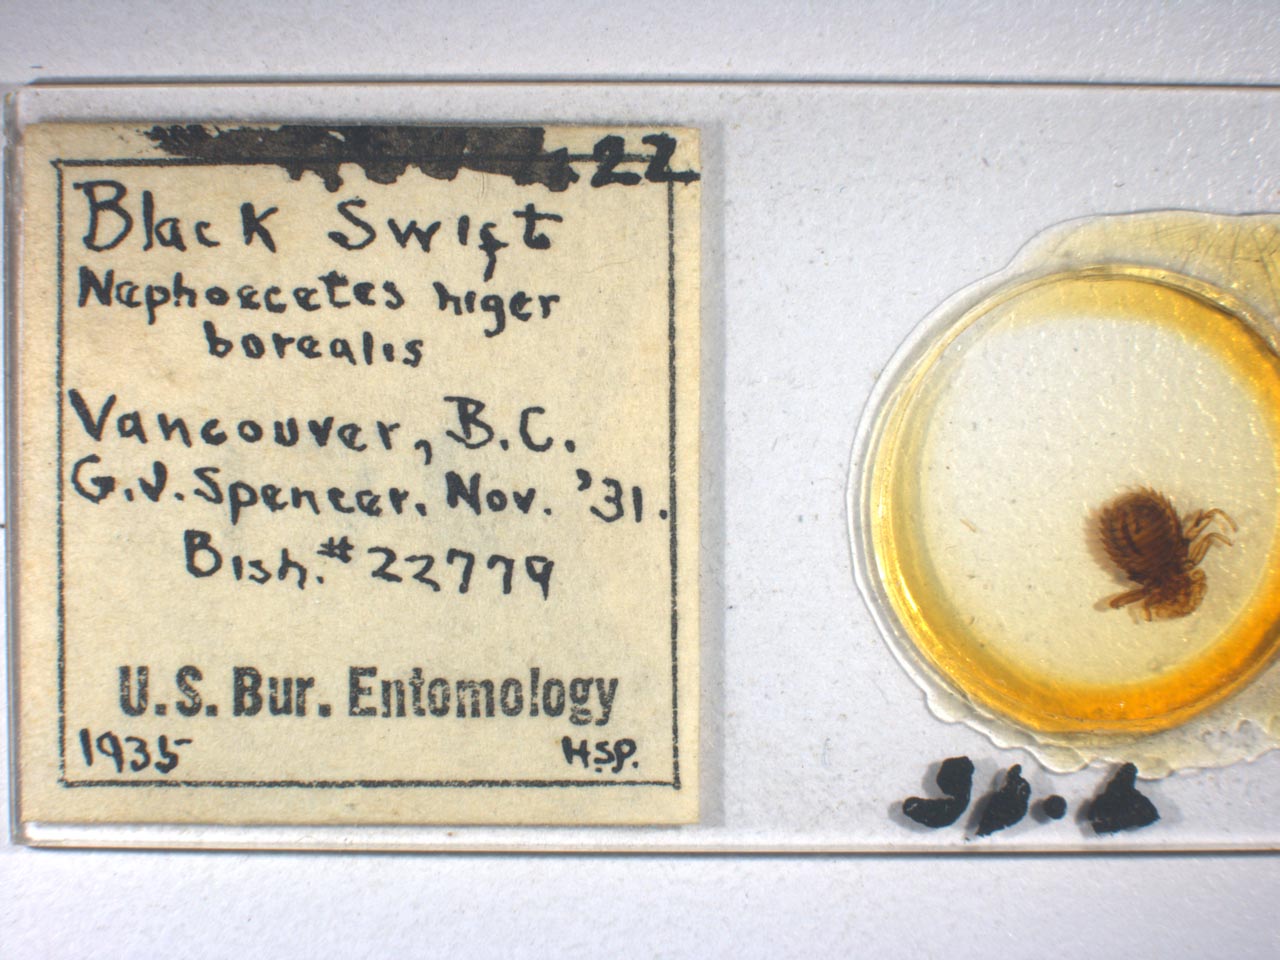 22
Black Swift
Nephoecetes niger
borealis
Vancouver, B.C.
G.J. Spencer. Nov. '31.
Bish. #22779
U.S. Bur. Entomology
1935 H.S.P.